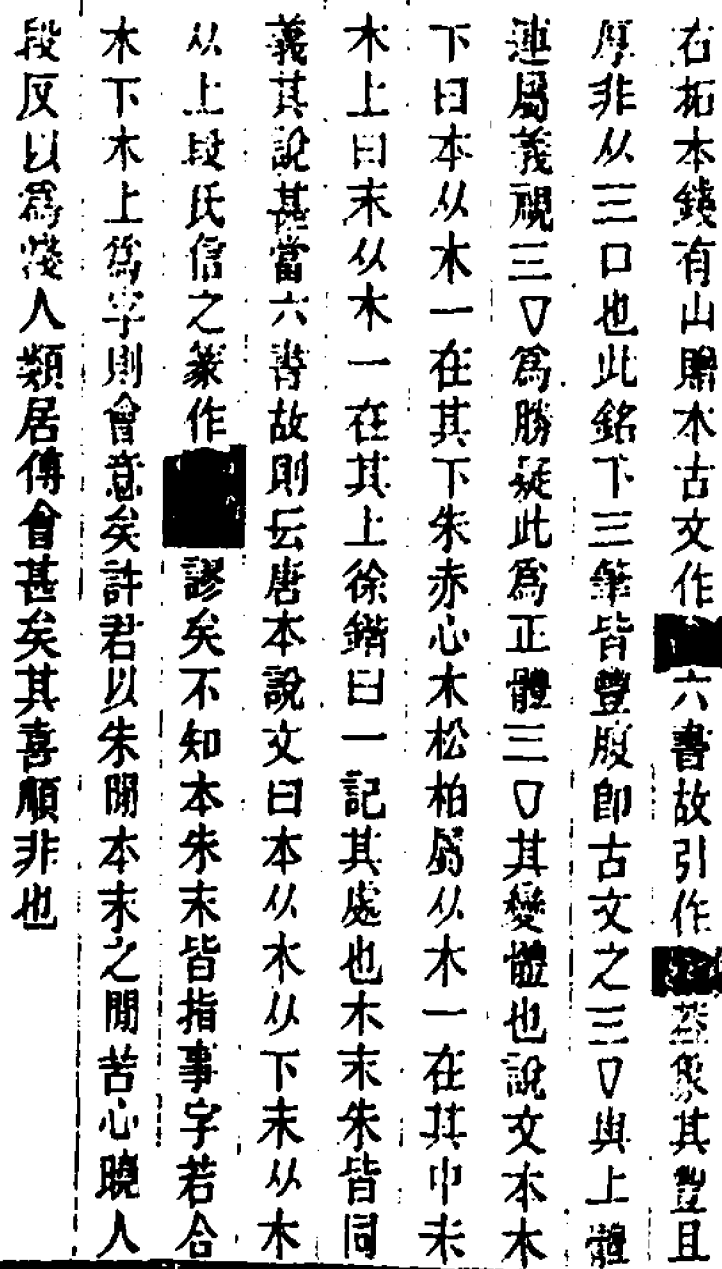 右拓本錢有山贈本古文作六書故引作蓋象其豐且
厚非从三口也此銘下三筆皆豐腹即古文之三▽與上體
連屬義視三▽爲勝疑此爲正體三▽其變體也說文本木
下曰本从木一在其下朱赤心木松柏屬从木一在其中末
木上曰末从木一在其上徐鍇曰一記其處也本末朱皆同
義其說甚當六書故則云唐本說文曰本从木从下末从木
从上段氏信之篆作謬矣不知本朱末皆指事字若合
木下木上爲字則會意矣許君以朱閒本末之閒苦心曉人
段反以爲淺人類居傅會甚矣其喜顛非也